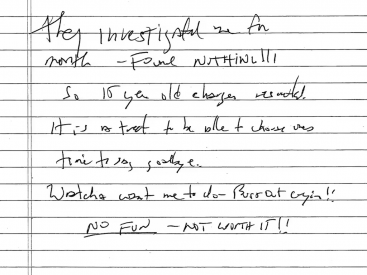 they investigated me for
month – Found NOTHING!!!
So 15 year old charges resulted.
It is a treat to be able to choose
time to say goodbye.
Watcha want me to do – Burst out cryin!!
NO FUN – NOT WORTH IT!!